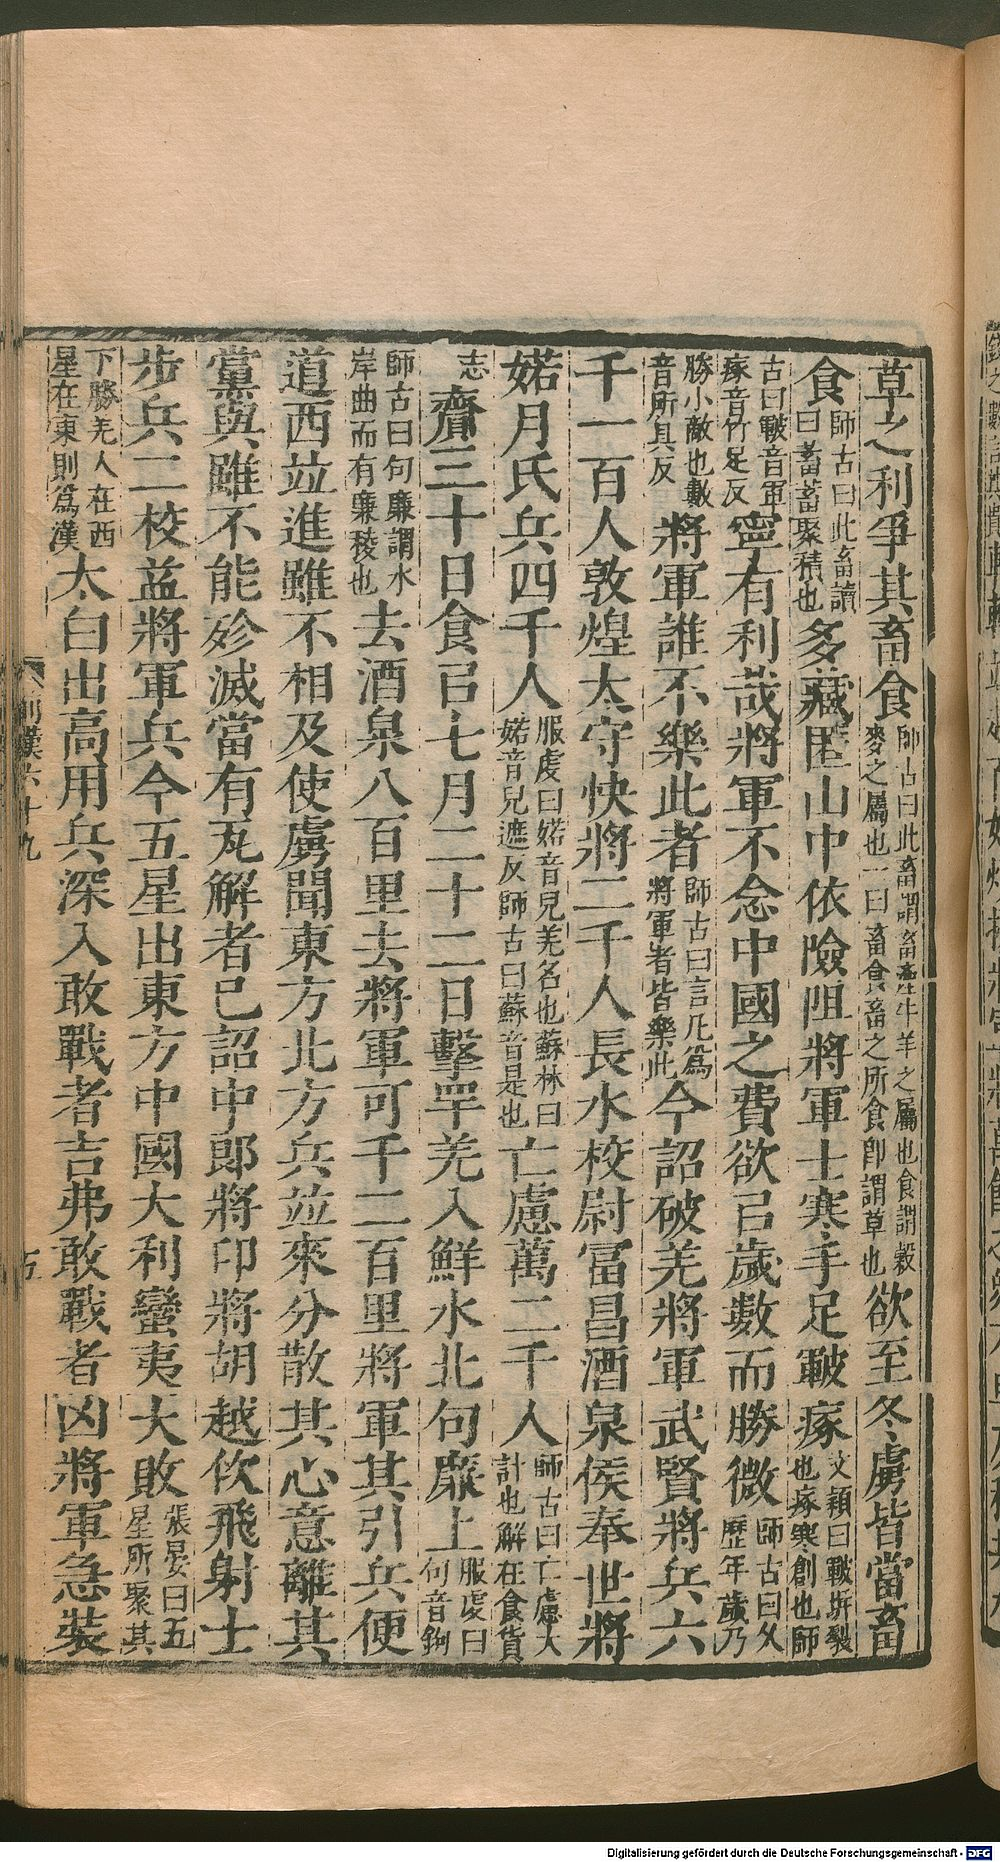 草之利爭其畜食師古曰此畜謂畜產牛羊之屬也食謂穀麥之屬也一曰畜食畜之所食卽謂草也欲至冬虜皆當畜
食師古曰此畜讀曰蓄蓄聚積也多藏匿山中依險阻將軍士寒手足皸瘃文穎曰皸坼裂也瘃寒創也師
古曰皸音軍瘃音竹足反寧有利哉將軍不念中國之費欲㠯歲數而勝微師古曰久歷年歲乃
勝小敵也數音所具反將軍誰不樂此者師古曰言凡爲將軍者皆樂此今詔破羌將軍武賢將兵六
千一百人敦煌太守快將二千人長水校尉富昌酒泉侯奉世將
婼月氏兵四千人服虔曰婼音兒羌名也蘇林曰婼音兒遮反師古曰蘇音是也亡慮萬二千人師古曰亡慮大計也解在食貨
志齎三十日食㠯七月二十二日擊䍐羌入鮮水北句廉上服虔曰句音鉤
師古曰句廉謂水岸曲而有廉稜也去酒泉八百里去將軍可千二百里將軍其引兵便
道西竝進雖不相及使虜聞東方北方兵竝來分散其心意離其
黨與雖不能殄滅當有瓦解者已詔中郎將卬將胡越佽飛射士
步兵二校益將軍兵今五星出東方中國大利蠻夷大敗張晏曰五星所聚其
下勝羌人在西星在東則爲漢太白出高用兵深入敢戰者吉弗敢戰者凶將軍急裝
前漢六十九
Digitalisierung gefördert durch die Deutsche Forschungsgemeinschaft - DFG